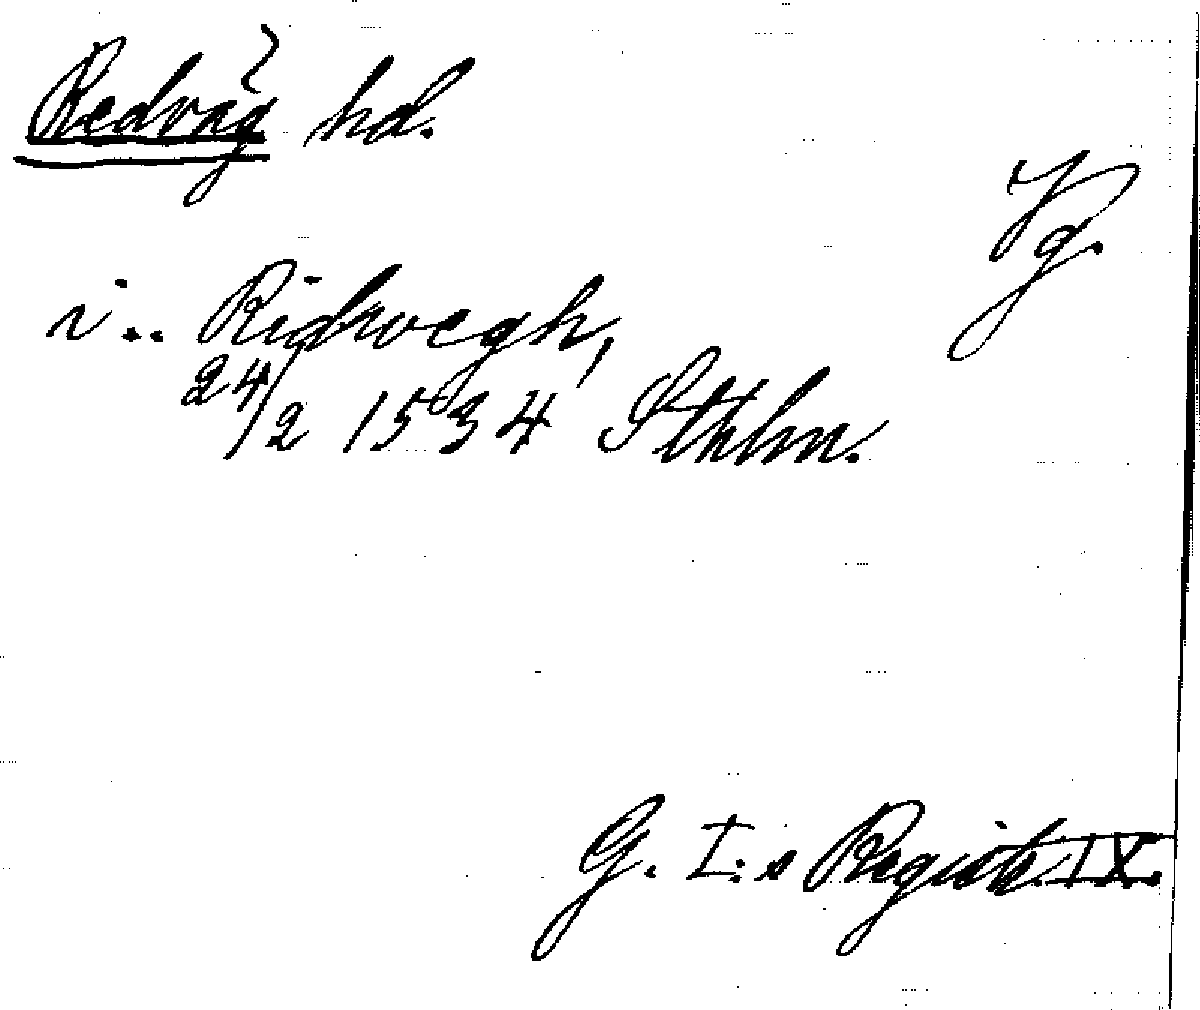 Redväg hd.
Vg.
i.. Ridwegh,
24/2 1534 Sthlm.
G. I:s Registr. IX.